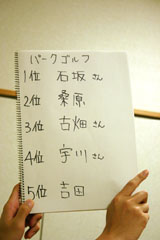 パークゴルフ
1位 石坂さん
2位 桑原
3位 古畑さん
4位 宇川さん
5位 吉田